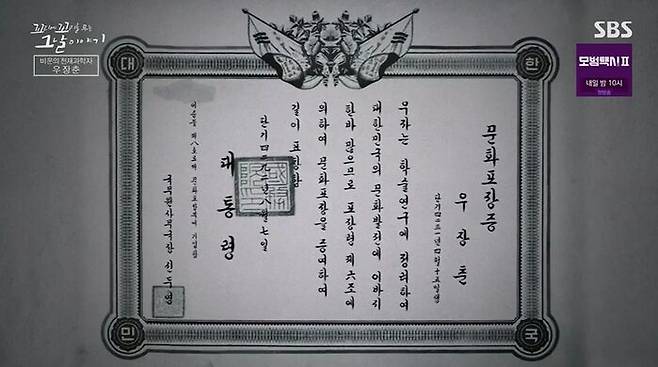 꼬리에 꼬리를 무는
그날 이야기
비운의 천재과학자
우장춘
SBS
모범택시Ⅱ
내일 밤 10시
대
한
민
국
문화포장증
우장춘
단기四二三一년四월十五일생
우자는 학술연구에 정려하여
대한민국의 문화발전에 이바지
한바 많으므로 포장령 제六조에
의하여 문화포장을 증여하여
길이 표창함
단기四二九二년八월七일
대통령